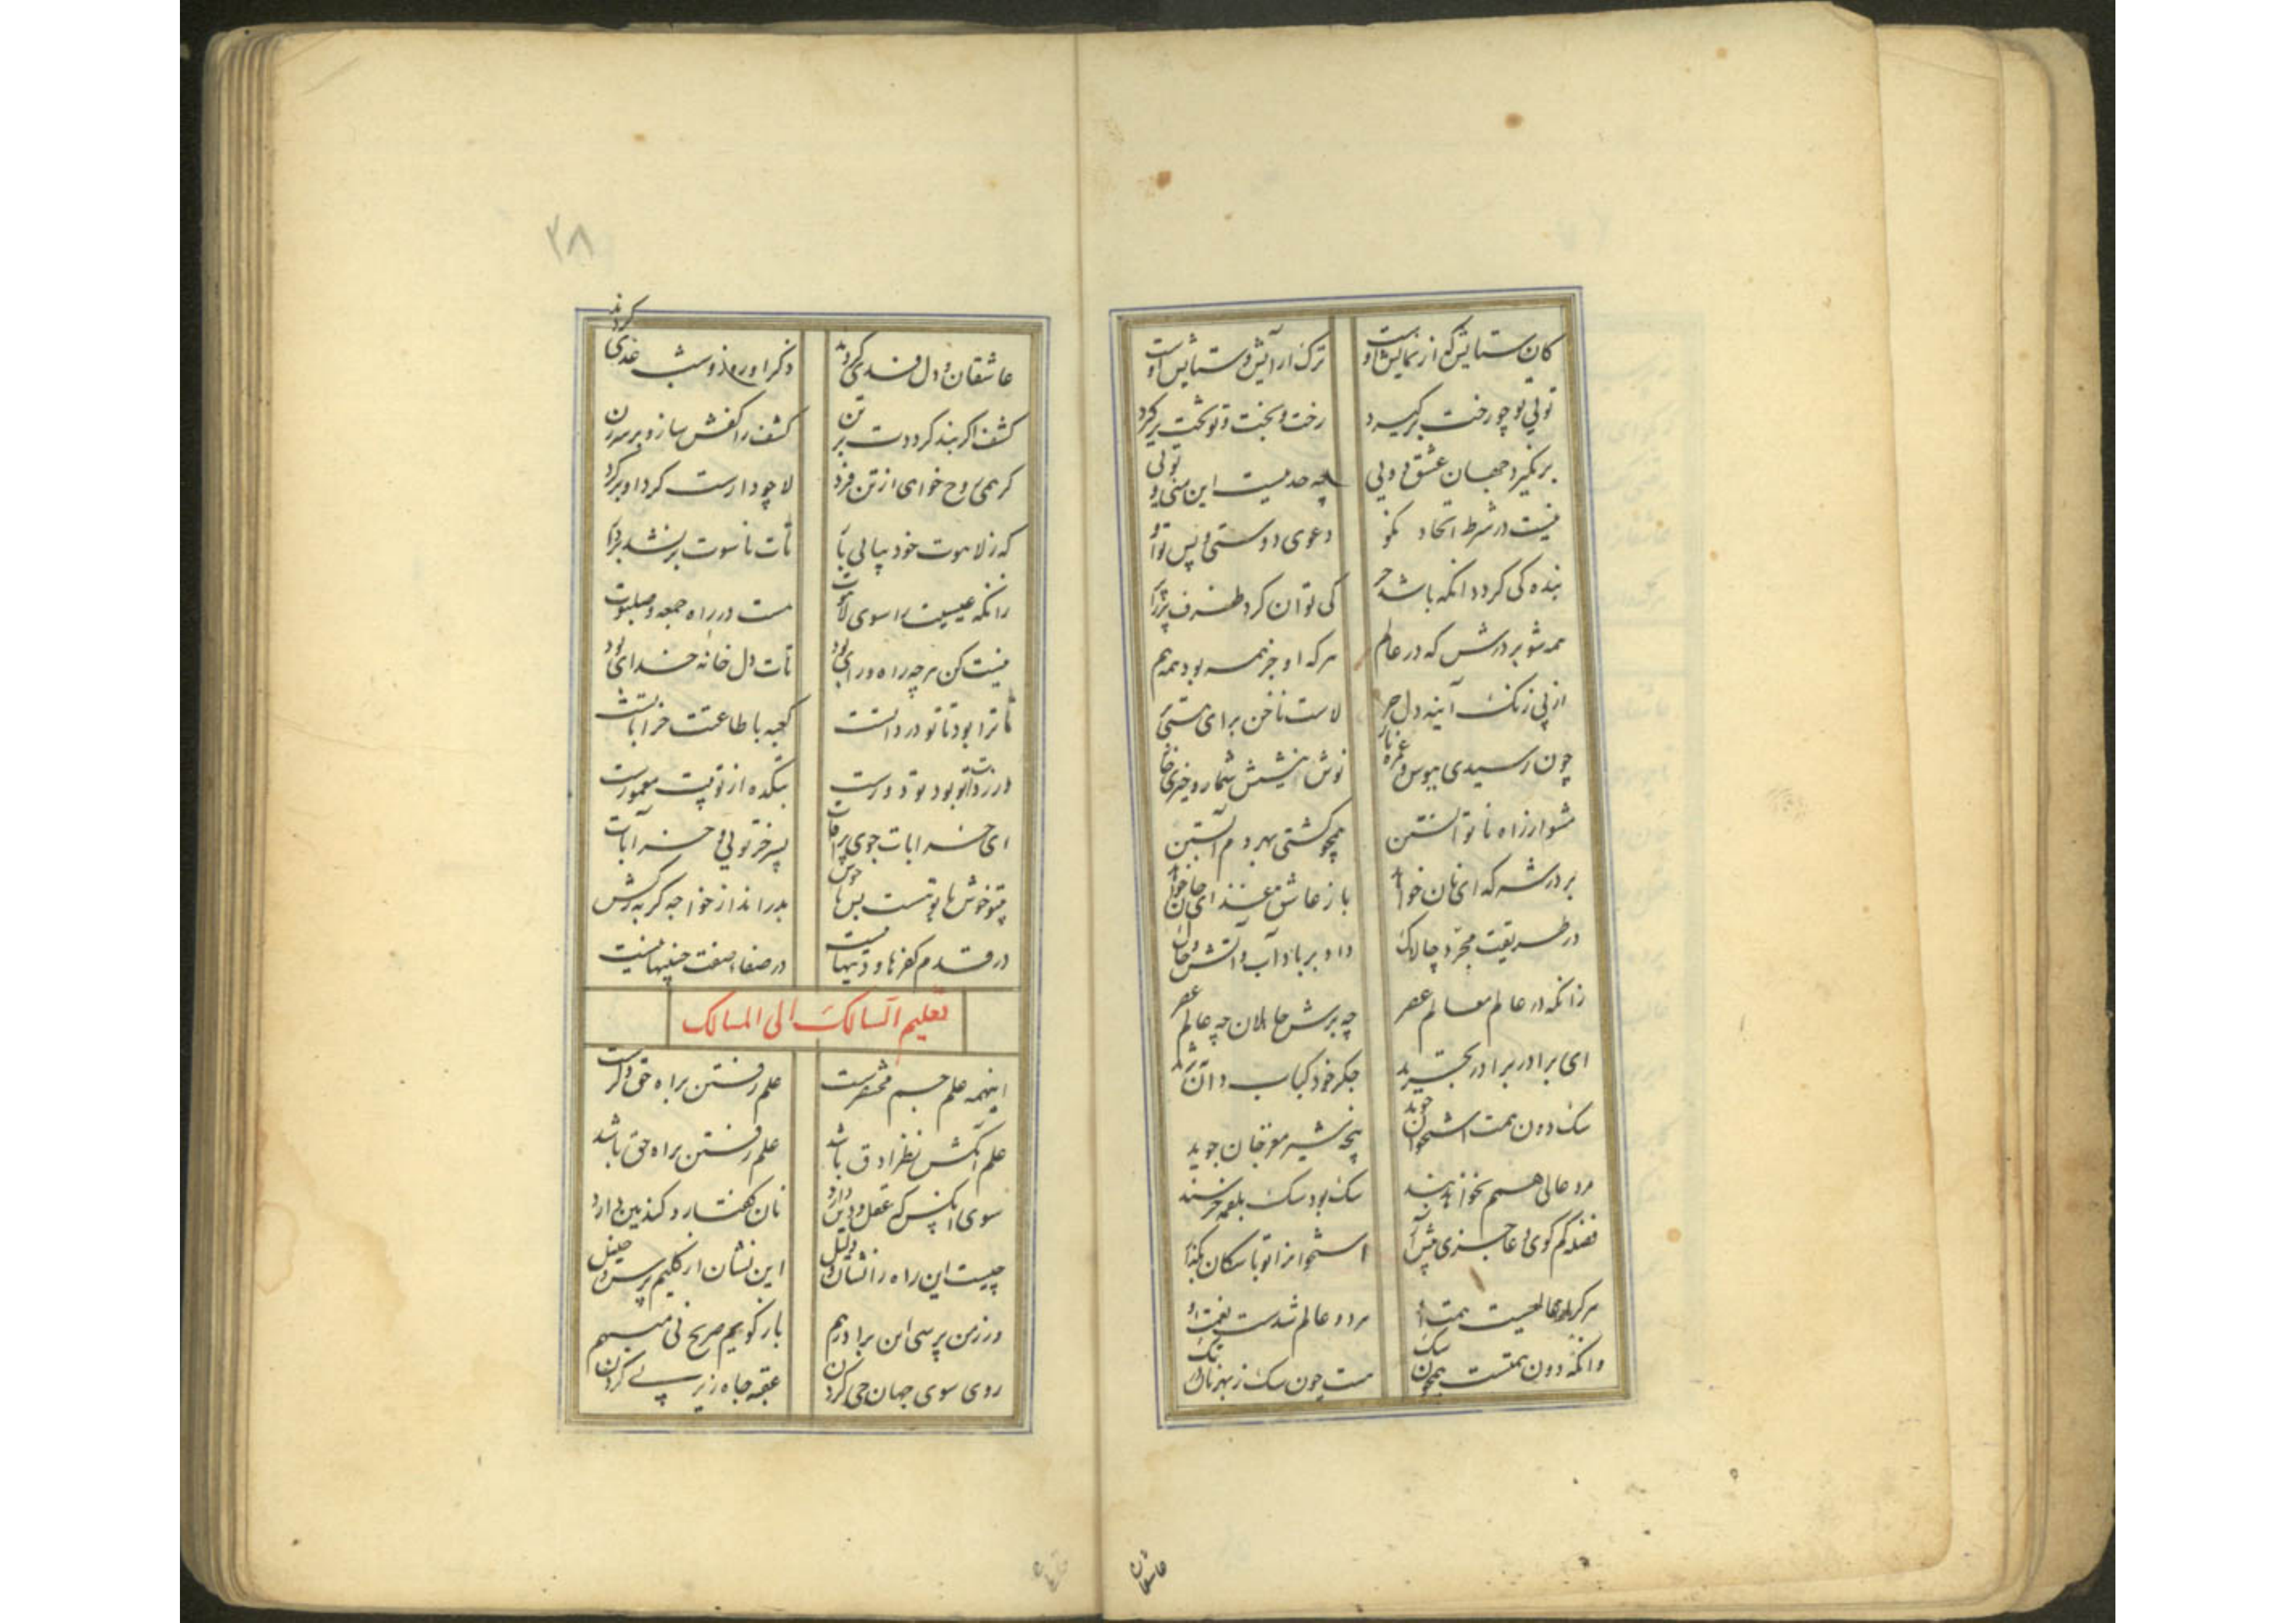 کان ستایش که از نمایش اوست ترک آرایش و ستایش اوست
تویی تو چو رخت برگیرد رخت و بخت تو تخت برگیرد
برنگیرد جهان عشق دویی چه حدیثست این منی و تویی
نیست در شرط اتحاد نکو دعوی دوستی و پس تو و او
بنده کی گردد آنکه باشد حر کی توان کرد ظرف پر را پر
همه شو بر درش که در عالم هرکه او جز همه بود همه هم
از پی زنگ آینه دل حر لاست ناخن برای هستی
چون رسیدی ببوس و غمزه یار نوش نیشش شمار و خیری خار
مشو ار زاه نا توانستن همچو کشتی بهر دم آبستن
بر در شه گدای نان خواهد باز عاشق غذای جان خواهد
در طریقت مجرد و چالاک داد بر باد آب و آتش و خاک
زانکه در عالم معالم عصر چه برش جاهلان چه عالم عصر
ای برادر برادر تجرید جگر خود کباب دان نه ثرید
سگ دون همت استخوان جوید پنجه شیر مغز جان جوید
مرد عالی همم نخواهد بند سگ بود سگ بلقمه خرسند
قصه کم گوی و عاجزی پیش آر استخوان را تو با سگان بگذار
هر که را عالیست همت او مر دو عالم شدست نعمت او
وانکه دون همتست همچون سگ هست چون سگ ز بهر نان در تک
عاشقان
۲۸
عاشقان دل فدی کردند ذکر او روز و شب غذی کردند
کشف اگر بند گرددت بر تن کشف را کفش ساز و بر سر زن
گر همی روح خواهی از تن فرد لا چو دارست گرد او برگرد
که ز لاهوت خود بیابی بار تات ناسوت بر نشد بر دار
زانکه عیسیت را سوی لاهوت هست در راه جمعه و صلبوت
نیست کن هرچه راه و رای بود تات دل خانه خدای بود
تا ترا بود با تو در ذاتست کعبه با طاعتت خراباتست
ور ز ذات تو بود تو دورست بتکده از تو بیت معمورست
ای خرابات جوی پر آفات پسر خر تویی و خر آبات
بی تو خوش با تو هست بس ناخوش بدر انداز خواجه گربه ز کش
در قدم کفرها و دینها نیست در صفاء صفت چنینها نیست
تعلیم السالک الی المسالک
اینهمه علم جسم مختصرست علم رفتن براه حق دگرست
علم آنکش نظر ادق باشد علم رفتن براه حق باشد
سوی آنکس که عقل و دین دارد نان گفتار و گندمین دارد
چیست این راه را نشان و دلیل این نشان از کلیم پرس و خلیل
ور ز من پرسی این برادر هم باز گویم صریح نی مبهم
روی سوی جهان حی کردن عقبه جاه زیر پی کردن